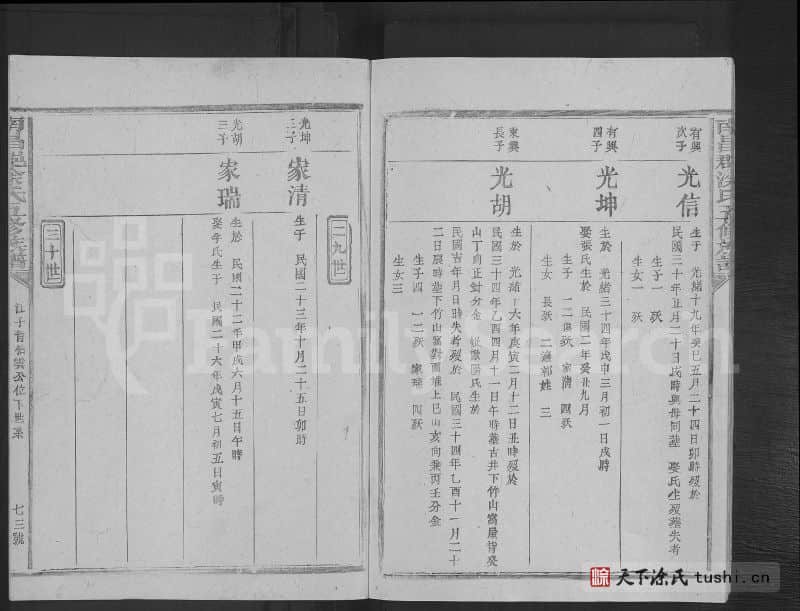 有興
次子
光信
生于 光緒十九年癸巳五月二十四日卯時歿於
民國三十年正月二十日戌時與母同墓 娶氏生歿葬失考
生子一 殀
生女一 殀
有興
四子
光坤
生於 光緒三十四年戊申三月初一日戌時
娶張氏生於 民國二年癸丑九月
生子 一二殀 三家清 四殀
生女 長殀 二適郭姓 三
東興
長子
光胡
生於 光緒十六年庚寅二月十二日丑時歿於
民國三十四年乙酉四月十一日午時葬古井下竹山窩
山丁向正針分金
民國 年月日時失考歿於 民國三十四年乙酉十一月二十
二日辰時葬下竹山窩對面堆上巳山亥向兼丙壬分金
生子四 一二殀 三家瑞 四殀
生女三
二九世
光坤
三子
家清
生于 民國二十三年十月二十五日卯時
光胡
三子
家瑞
生於 民國二十三年甲戌六月十五日午時
娶李氏生于 民國二十六年戊寅七月初五日寅時
三十世
七三號
FamilySearch
天下涂氏 tushi.cn